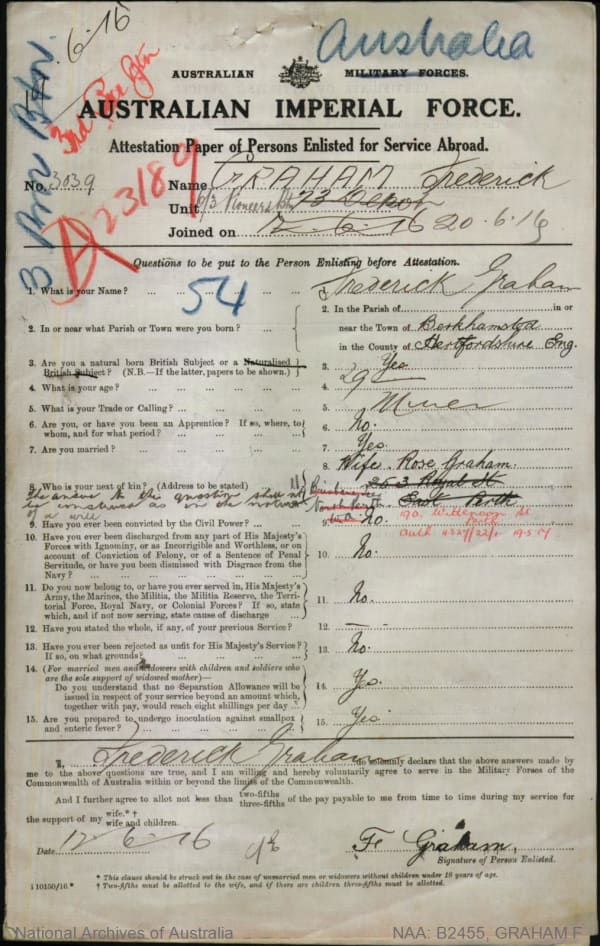 Australia
12.6.16
3rd Pnr Btn
AUSTRALIAN MILITARY FORCES.
AUSTRALIAN IMPERIAL FORCE.
Attestation Paper of Persons Enlisted for Service Abroad.
No. 3039 Name GRAHAM Frederick
A23189
Unit 6/3 Pioneers Btn
Joined on 12-6-16 20.6.16
Questions to be put to the Person Enlisting before Attestation.
54
1. What is your Name? ... 1. Frederick Graham
2. In or near what Parish or Town were you born? ... 2. In the Parish of in or
near the Town of Berkhamsted
in the County of Hertfordshire Eng.
3. Are you a natural born British Subject or a Naturalised 3. Yes
British Subject? (N.B.—If the latter, papers to be shown.)
4. What is your age? ... 4. 29
5. What is your Trade or Calling? ... 5. Miner
6. Are you, or have you been an Apprentice? If so, where, to 6. No.
whom, and for what period? ...
7. Are you married? ... 7. Yes
8. Who is your next of kin? (Address to be stated) 8. Wife. Rose Graham.
253 Royal St
East Perth
The answer to this question shall not
be construed as in the nature
of a will
170 Wittenoom St
Perth
9. Have you ever been convicted by the Civil Power? ... 9. No.
10. Have you ever been discharged from any part of His Majesty's
Forces with Ignominy, or as Incorrigible and Worthless, or on
account of Conviction of Felony, or of a Sentence of Penal
Servitude, or have you been dismissed with Disgrace from the
Navy? ... 10. No.
11. Do you now belong to, or have you ever served in, His Majesty's
Army, the Marines, the Militia, the Militia Reserve, the Terri-
torial Force, Royal Navy, or Colonial Forces? If so, state
which, and if not now serving, state cause of discharge 11. No.
12. Have you stated the whole, if any, of your previous Service? 12. —
13. Have you ever been rejected as unfit for His Majesty's Service? 13. No.
If so, on what grounds? ...
14. (For married men and widowers with children and soldiers who
are the sole support of widowed mother)—
Do you understand that no Separation Allowance will be
issued in respect of your service beyond an amount which,
together with pay, would reach eight shillings per day ... 14. Yes.
15. Are you prepared to undergo inoculation against smallpox
and enteric fever? ... 15. Yes
I, Frederick Graham do solemnly declare that the above answers made by
me to the above questions are true, and I am willing and hereby voluntarily agree to serve in the Military Forces of the
Commonwealth of Australia within or beyond the limits of the Commonwealth.
And I further agree to allot not less than two-fifths three-fifths of the pay payable to me from time to time during my service for
the support of my wife.*† wife and children.
Date 12-6-16 F Graham.
Signature of Person Enlisted.
* This clause should be struck out in the case of unmarried men or widowers without children under 18 years of age.
† Two-fifths must be allotted to the wife, and if there are children three-fifths must be allotted.
I 10150/16.*
National Archives of Australia NAA: B2455, GRAHAM F